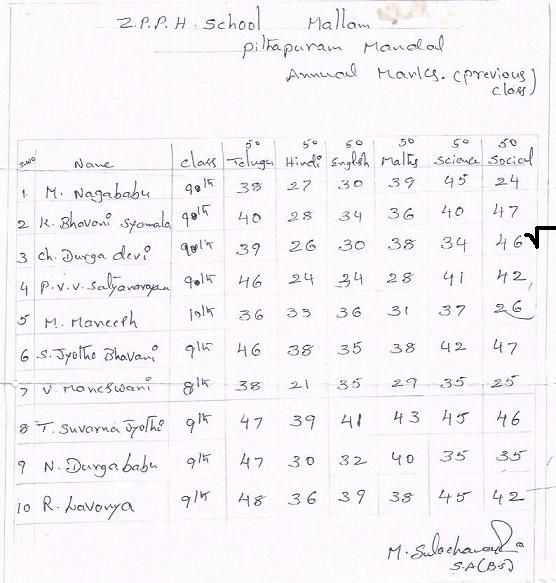 Z.P.P.H. School Mallam
Pithapuram Mandal
Annual Marks. (previous
class)
S.No Name Class 50 Telugu 50 Hindi 50 English 50 Maths 50 Science 50 Social
1 M. Nagababu 9th 38 27 30 39 45 24
2 K. Bhavani Syamala 9th 40 28 34 36 40 47
3 Ch. Durga devi 9th 39 26 30 38 34 46
4 P.V.V. Satyanarayana 9th 46 24 34 28 41 42
5 M. Maneeph 10th 36 33 36 31 37 26
6 S. Jyothi Bhavani 9th 46 38 35 38 42 47
7 V. Maneswani 8th 38 21 35 29 35 25
8 T. Suvarna Jyothi 9th 47 39 41 43 45 46
9 N. Durgababu 9th 47 30 32 40 35 35
10 R. Lavonya 9th 48 36 39 38 45 42
M.
S.A (B.S)